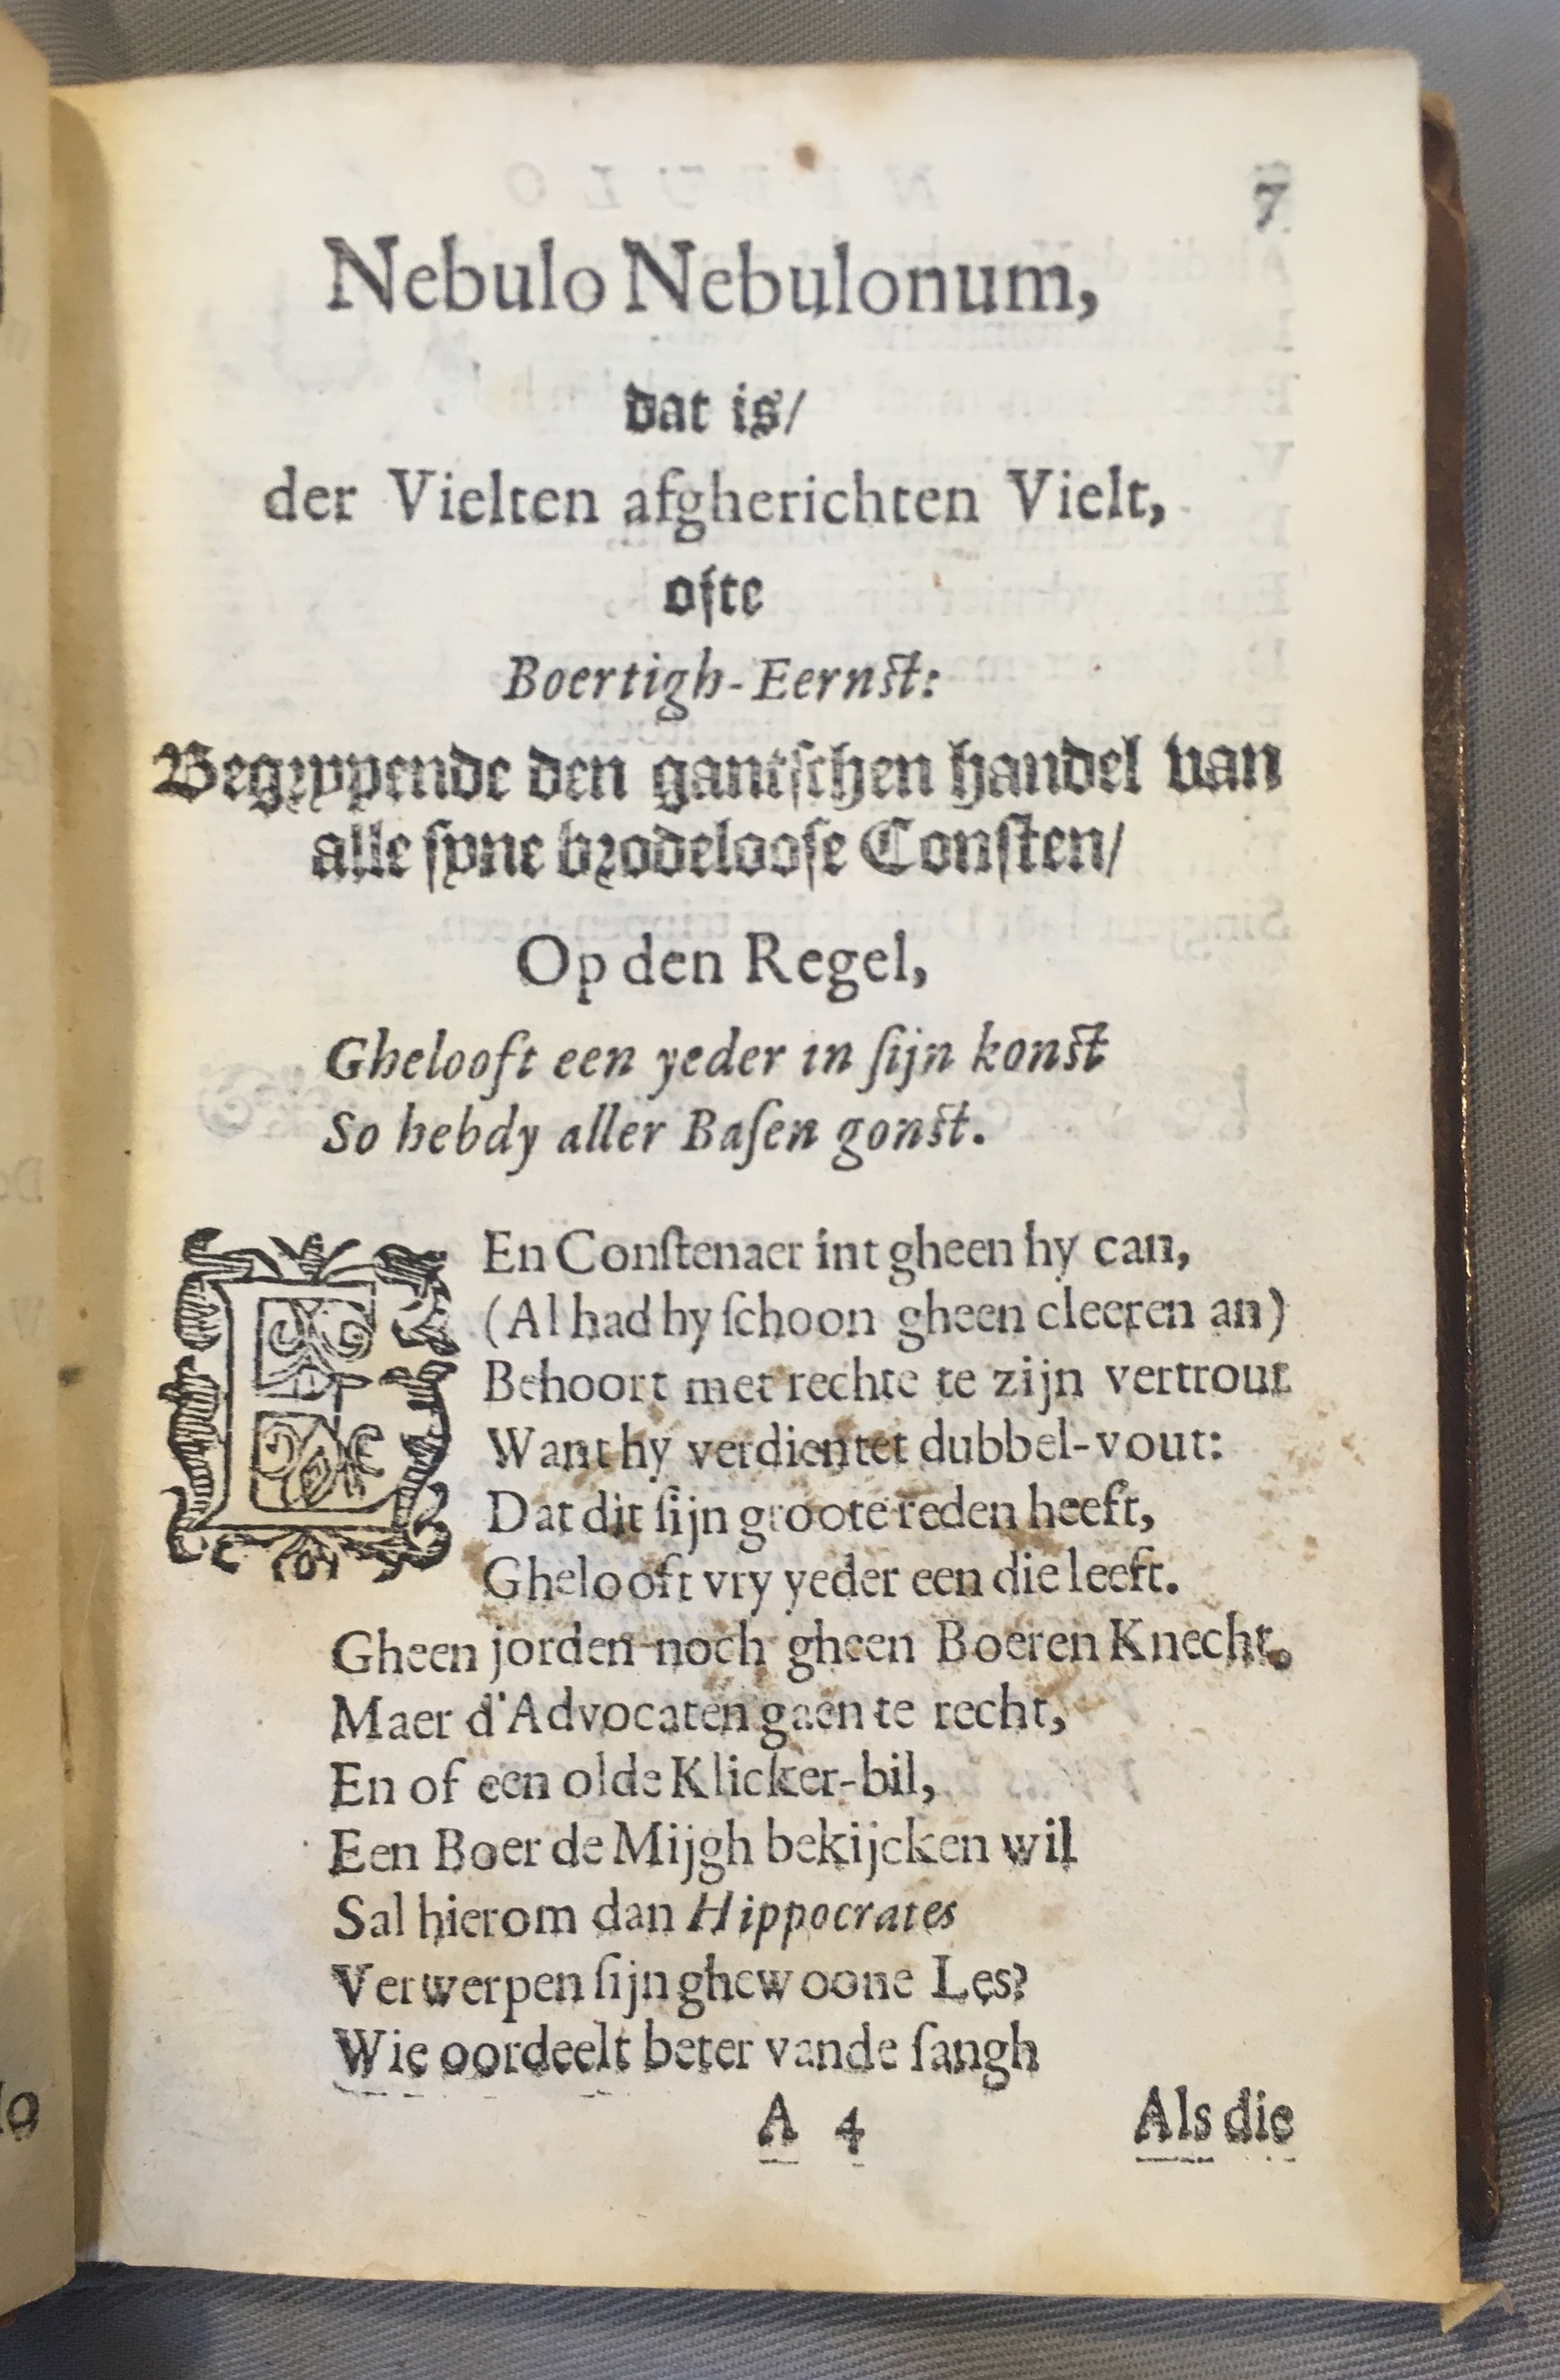 7
Nebulo Nebulonum,
dat is/
der Vielten afgherichten Vielt,
ofte
Boertigh-Eernſt:
Begrypende den gantſchen handel van
alle ſyne brodelooſe Conſten/
Op den Regel,
Ghelooft een yeder in ſijn konſt
So hebdy aller Baſen gonſt.
EEn Conſtenaer int gheen hy can,
(Al had hy ſchoon gheen cleeren an)
Behoort met rechte te zijn vertrout
Want hy verdientet dubbel-vout:
Dat dit ſijn groote reden heeft,
Ghelooft vry yeder een die leeft.
Gheen jorden noch gheen Boeren Knecht,
Maer d'Advocaten gaen te recht,
En of een olde Klicker-bil,
Een Boer de Mijgh bekijcken wil
Sal hierom dan Hippocrates
Verwerpen ſijn ghewoone Les?
Wie oordeelt beter vande ſangh
A 4 Als die